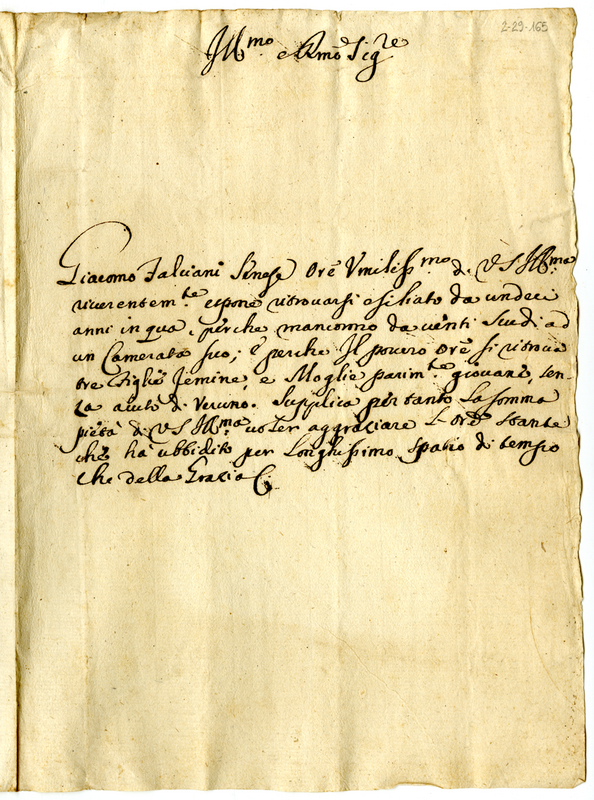 2-29-165
Ill.mo e R.mo Sig.re
Giacomo Falciani Senese Ore Umiliss.mo di V S Ill.ma
riverentem.te espone ritrovarsi esiliato da undeci
anni in qua, perche mancorno da venti scudi ad
un Camerata suo; e perche Il povero Ore si ritrova
tre figlie femine, e Moglie parim.te giovane, sen-
za aiuto di Veruno. Supplica per tanto La somma
pietà di V S Ill.ma voler aggraziare L'Ore stante
che ha ubbidito per Longhissimo spatio di tempo
che della Grazia